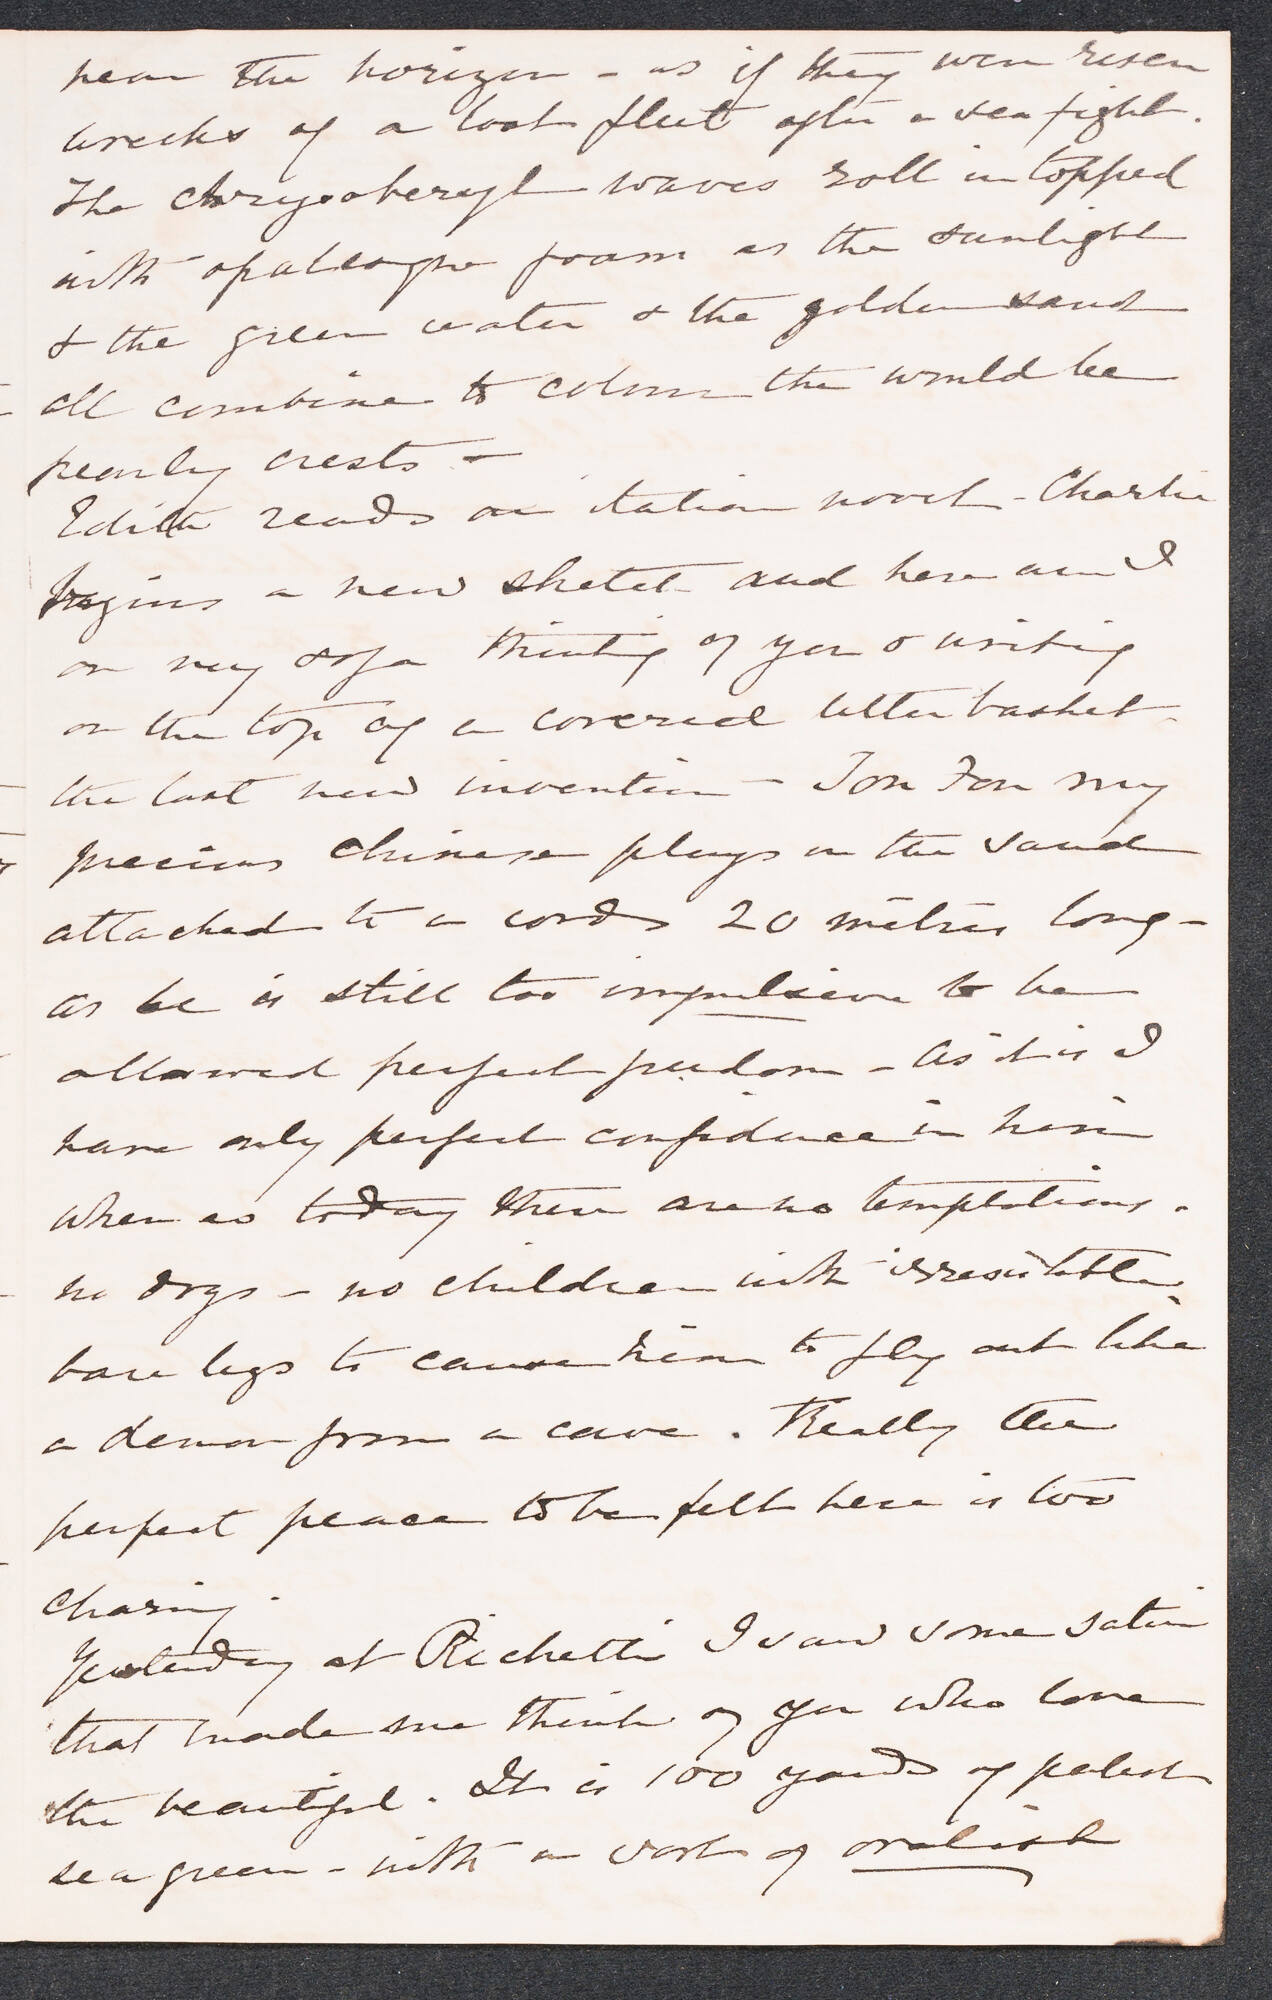 near the horizon - as if they were risen
wrecks of a lost fleet after a sea fight.
The chrysoberyl waves roll in topped
with opalesque foam as the sunlight
& the green water & the golden sand
all combine to colour the would be
pearly crests -
Edith reads an Italian novel - Charlie
begins a new sketch and here am I
on my sofa thinking of you & writing
on the top of a covered letter basket
the last new invention - Fon Fon my
precious Chinese plays on the sand
attached to a cord 20 mètres long -
as he is still too impulsive to be
allowed perfect freedom - As it is I
have only perfect confidence in him
when as today there are no temptations.
no dogs - no children with irresistible
bare legs to cause him to fly out like
a demon from a cave. Really the
perfect peace to be felt here is too
charming.
Yesterday at Richetti's I saw some satin
that made me think of you who love
the beautiful. It is 100 yards of palest
sea green - with a sort of ovalish